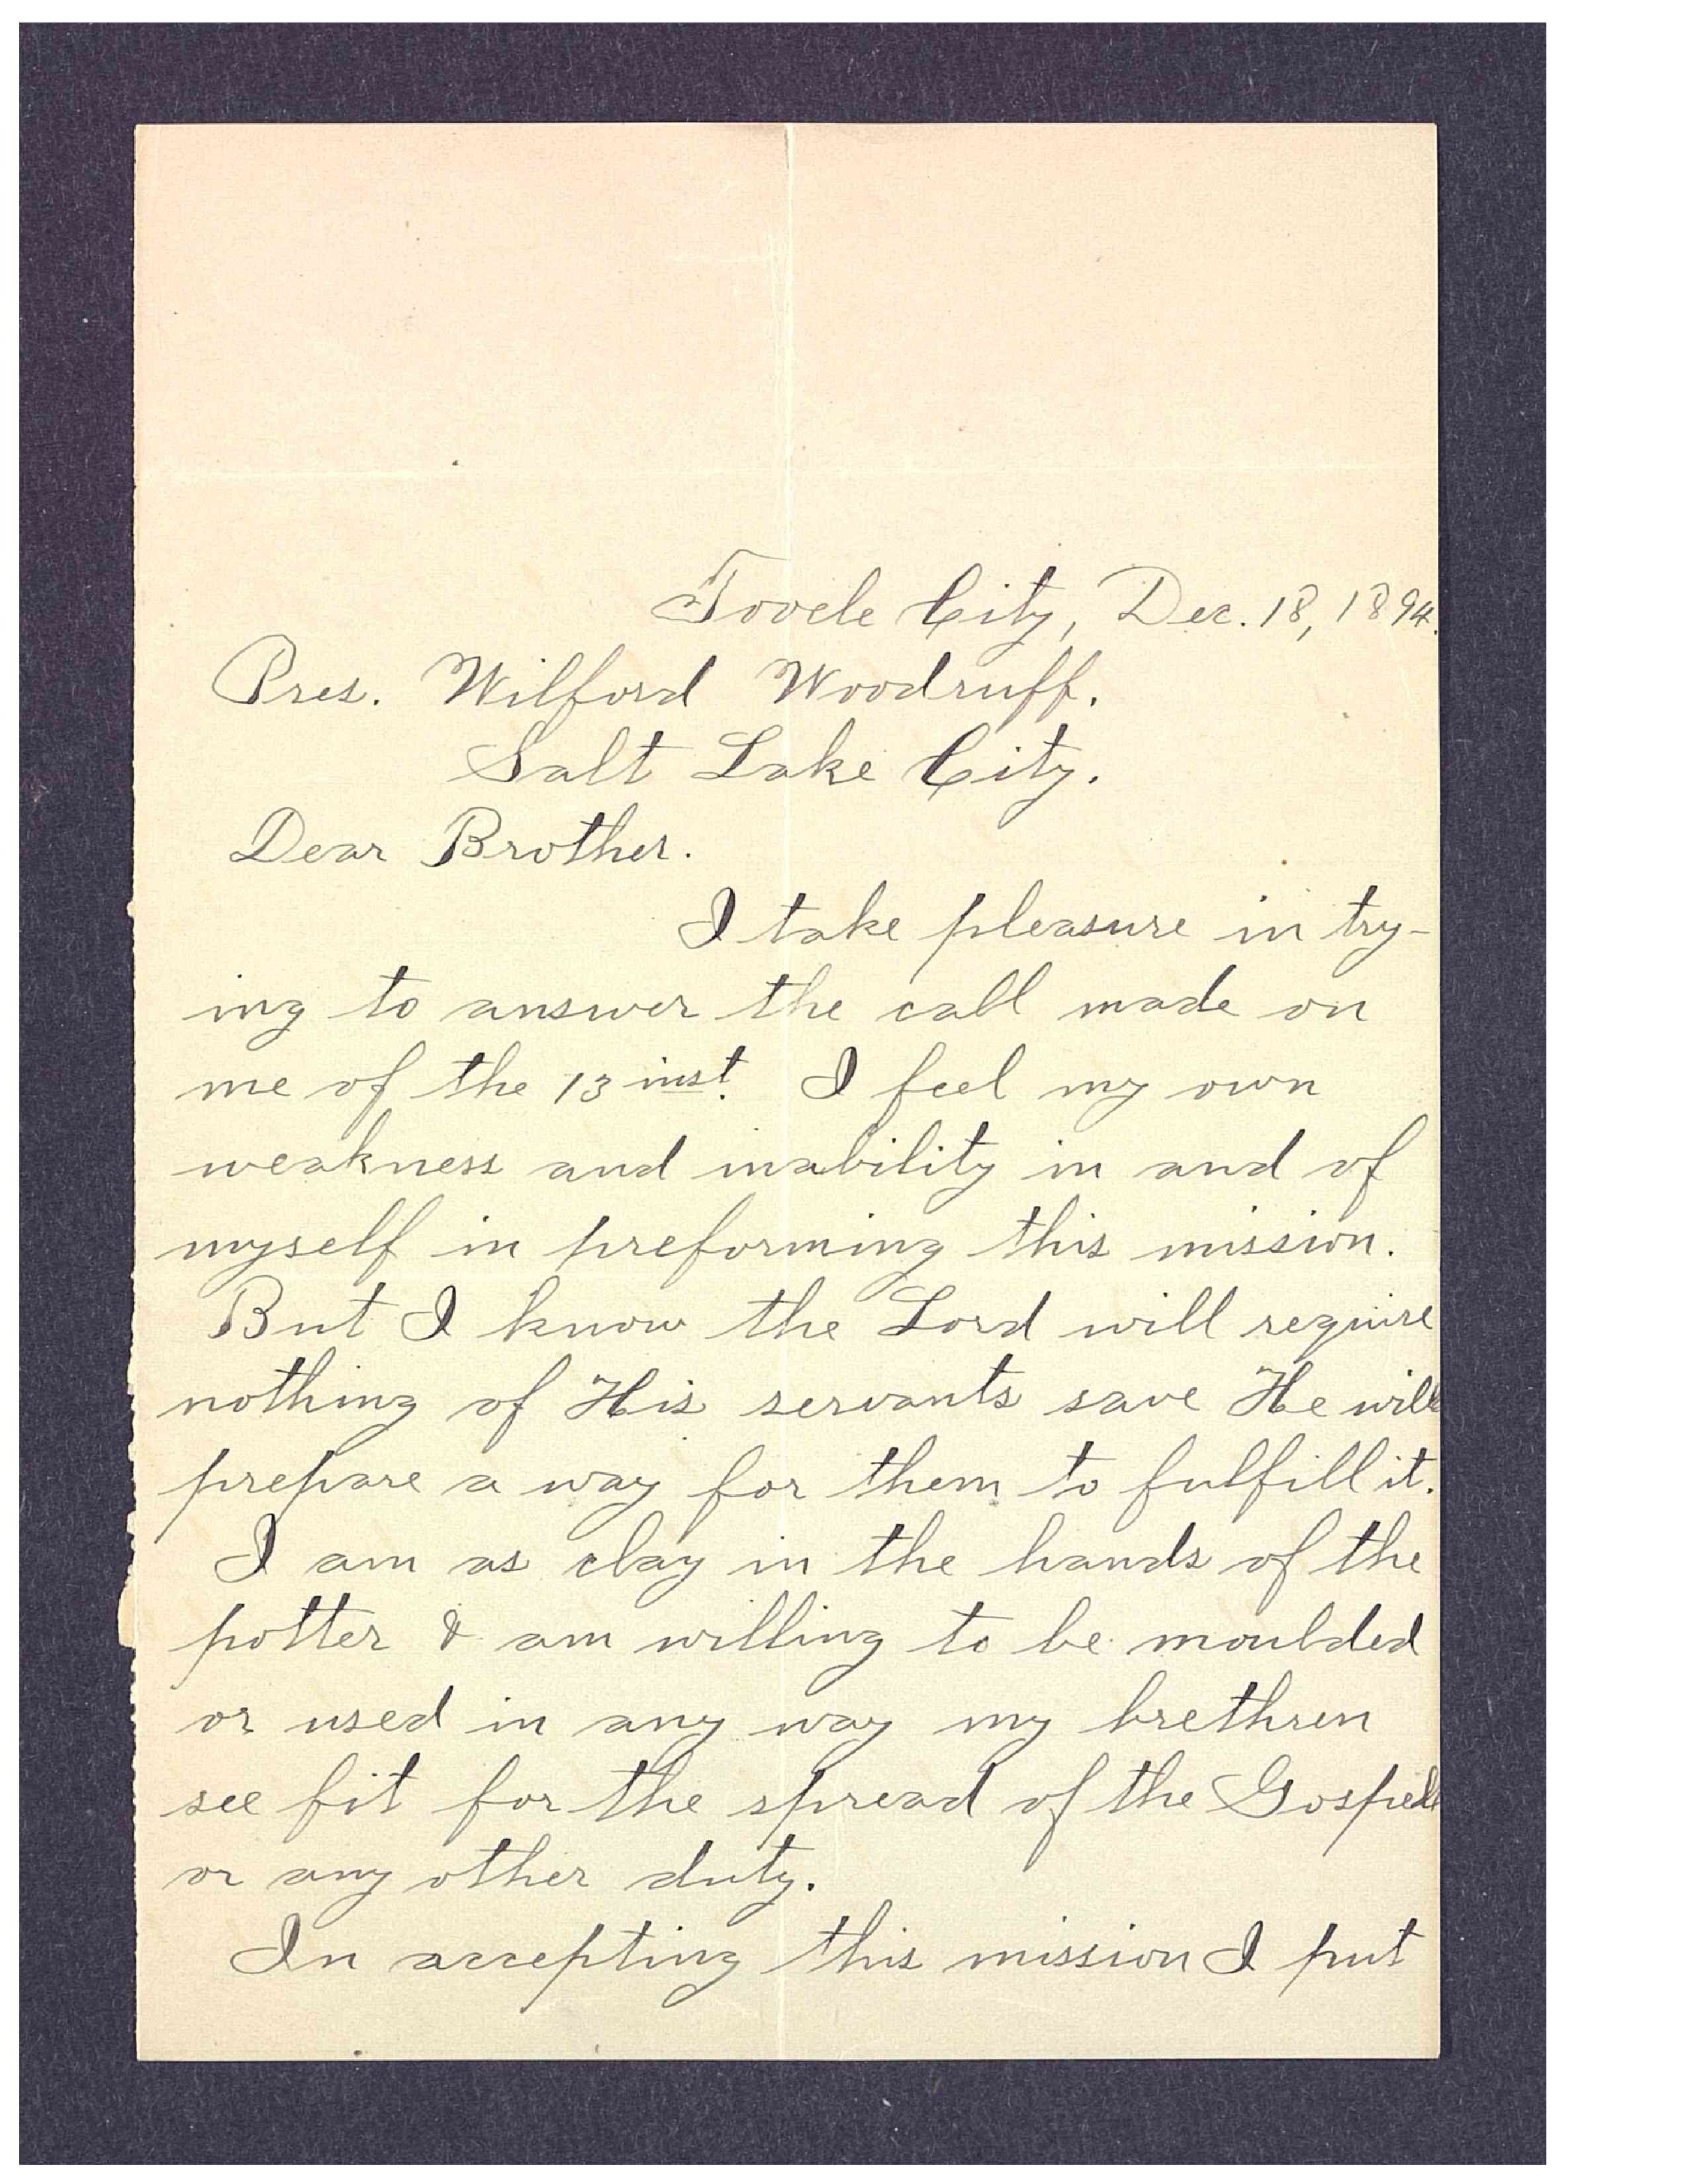 Tooele City, Dec. 18, 1894.
Pres. Wilford Woodruff.
Salt Lake City.
Dear Brother.
I take pleasure in try-
ing to answer the call made on
me of the 13 inst. I feel my own
weakness and inability in and of
myself in preforming this mission.
But I know the Lord will require
nothing of His servants save He will
prepare a way for them to fulfill it.
I am as clay in the hands of the
potter & am willing to be moulded
or used in any way my brethren
see fit for the spread of the Gospell
or any other duty.
In accepting this mission I put